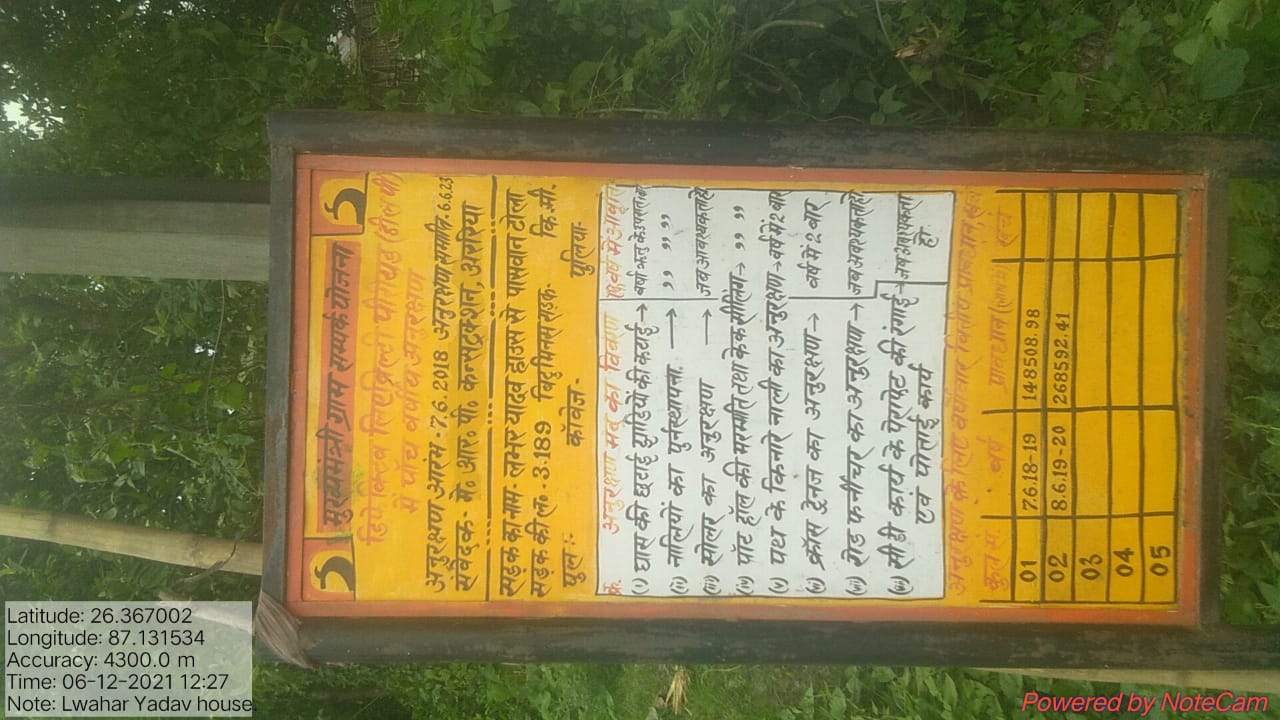 मुख्यमंत्री ग्राम सम्पर्क योजना
में पाँच वर्षीय अनुरक्षण
अनुरक्षण आरंभ - 7.6.2018 अनुरक्षण समाप्ति- 6.6.23
संवेदक - मे० आर० पी० कन्सट्रक्शन, अररिया
सड़क का नाम - लभर यादव हाउस से पासवान टोला
सड़क की ल०- 3.189 विटुमिनस सड़क- कि.मी.
पुल :- कॉजवेल- पुलिया-
क्र. अनुरक्षण मद का विवरण
(i) घास की छटाई झाड़ियों की कटाई →
(ii) नालियों का पुर्नस्थापना. → ,, ,, ,,
(iii) सोल्डर का अनुरक्षण →
(iv) पॉट हॉल की मरम्मति → ,, ,,
(v) पथ के किनारे नाली का अनुरक्षण → वर्ष में 2 बार
(vi) क्रॉस ड्रेनेज का अनुरक्षण → वर्ष में 2 बार
(vii) रोड फर्नीचर का अनुरक्षण →
(viii) सी डी कार्य के पैरापेट की रंगाई →
एवं पोताई कार्य
अनुरक्षण के लिए वर्षवार वित्तीय प्रावधान
वर्ष प्रावधान खर्च
01 7.6.18-19 148508.98
02 8.6.19-20 268592.41
03
04
05
Latitude: 26.367002
Longitude: 87.131534
Accuracy: 4300.0 m
Time: 06-12-2021 12:27
Note: Lwahar Yadav house.
Powered by NoteCam